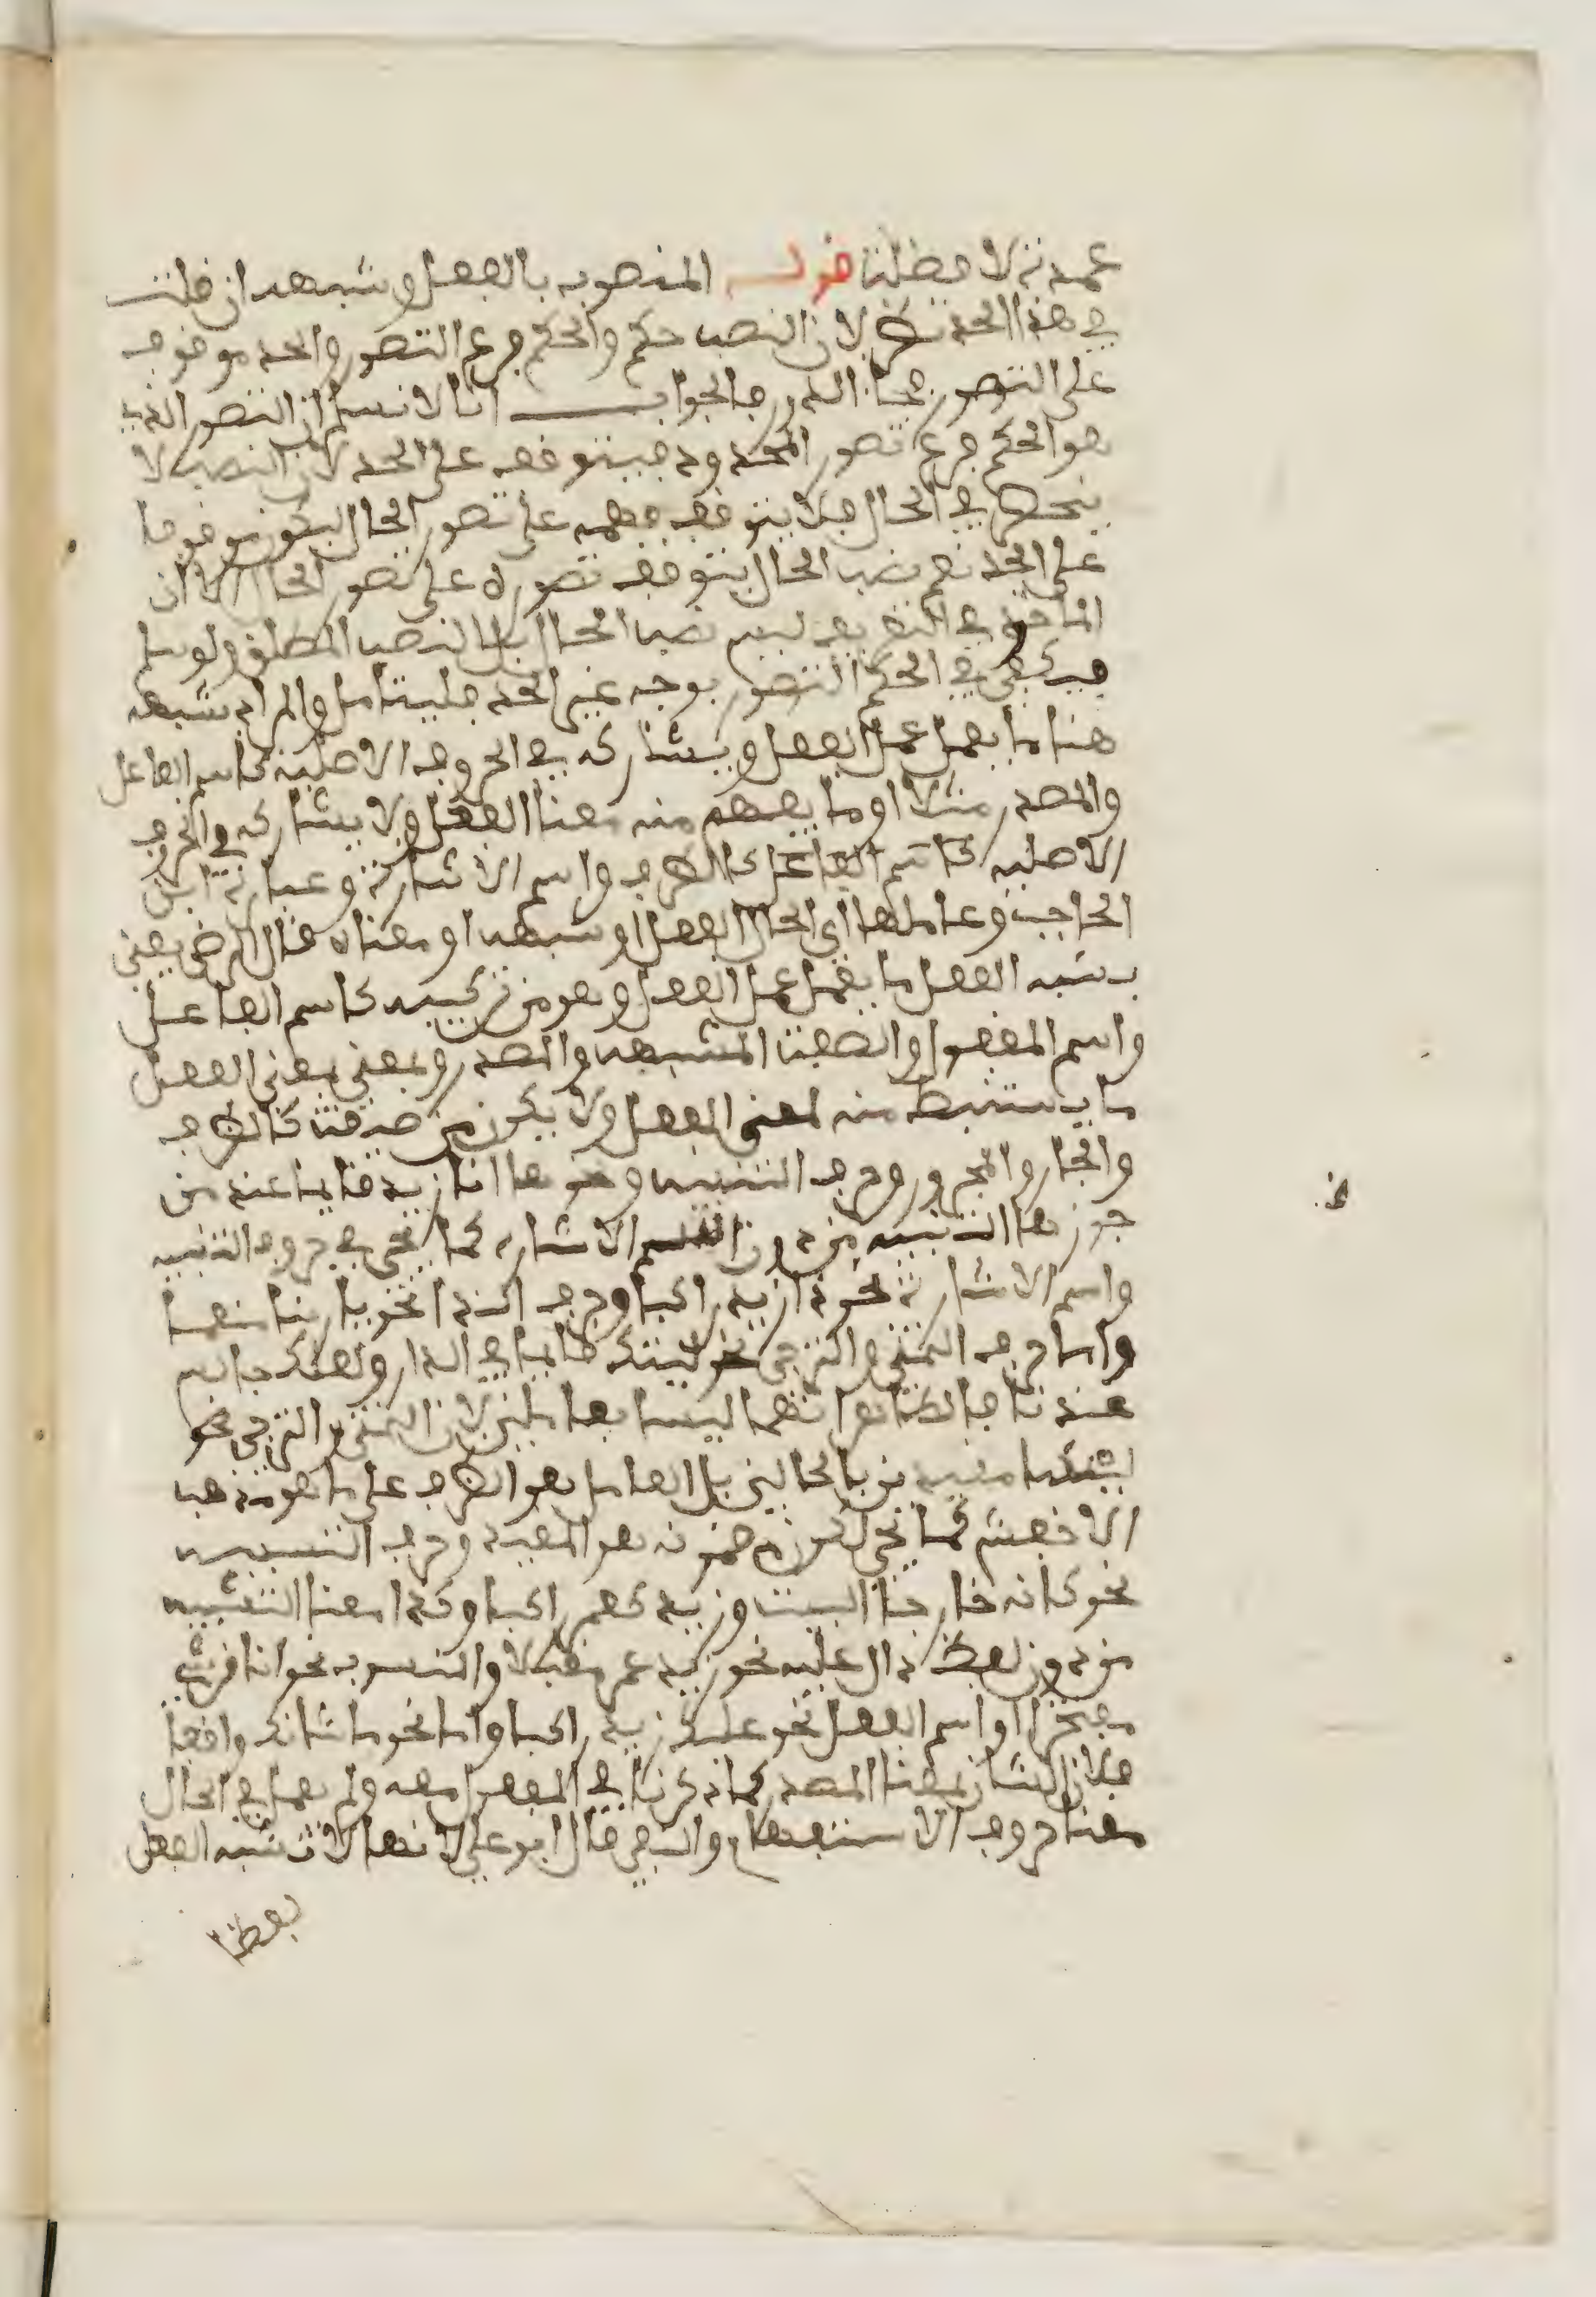 عمدة لا فضلة قوله المنصوب بالفعل وشبهه ان قلت
في هذا الحد نظر لان النصب حكم والحكم فرع التصور والحد موقوف
على التصور فجاء الدور فالجواب انا لا نسلم ان التصور الذي
هو الحكم فرع تصور المحدود فيتوقف على الحد لان النصب لا
ينحصر في الحال فلا يتوقف فهمه على تصور الحال ليكون موقوفا
على الحد نعم نصب الحال يتوقف تصوره على تصور الحال الا ان
الماخوذ في التعريف ليس نصب الحال بل النصب المطلق ولو سلم
فيكفي في الحكم التصور بوجه غير الحد فليتامل والمراد بشبهه
هنا ما يعمل عمل الفعل ويشاركه في الحروف الاصلية كاسم الفاعل
والمصدر مثلا او ما يفهم منه معنا الفعل ولا يشاركه في الحروف
الاصليه كاسم الفاعل كالظرف واسم الاشارة وعبارة ابن
الحاجب وعاملها اي الحال الفعل او شبهه او معناه قال الرضي يعني
بشبه الفعل ما يعمل عمل الفعل وهو من تركيبه كاسم الفاعل
واسم المفعول والصفة المشبهه والمصدر ويعني بمعنى الفعل
ما يستنبط منه لمعنى الفعل ولا يكون من صيغته كالظرف
والجار والمجرور وحرف التنبيه ونحو ها انا زيد قايما عند من
جوز ها التنبيه من دون اسم الاشاره كما يجيء في حروف التنبيه
واسم الاشارة نحو ذا زيد راكبا وحرف الندا نحو يا ربنا منعما
واما حرف التمني والترجي نحو ليتك قايما في الدار ولعلك جالس
عندنا فالظاهر انهما ليسا بعاملين لان التمني والترجي نحو
ليتنسا مقيدين بالحالين بل العامل هو الظرف على ما هو مذهب
الاخفش كما يجيء لكون مضمونه هو المقيد وحرف التشبيه
نحو كانه خارجا البيت وزيد كعمر راكبا وكذا معنا التشبيه
من دون لفظ دال عليه نحو زيد عمر مقبلا والمنسوب نحو انا قرشي
مفتخرا او اسم الفعل نحو عليك زيد راكبا واما نحو ما شانك واقفا
فلان الشان بمعنا المصدر كما ذكرنا في المفعول معه ولم يعمل في الحال
معنا حروف الاستفهام والنفي قال ابو علي لانها لا تشبه الفعل
لفظا